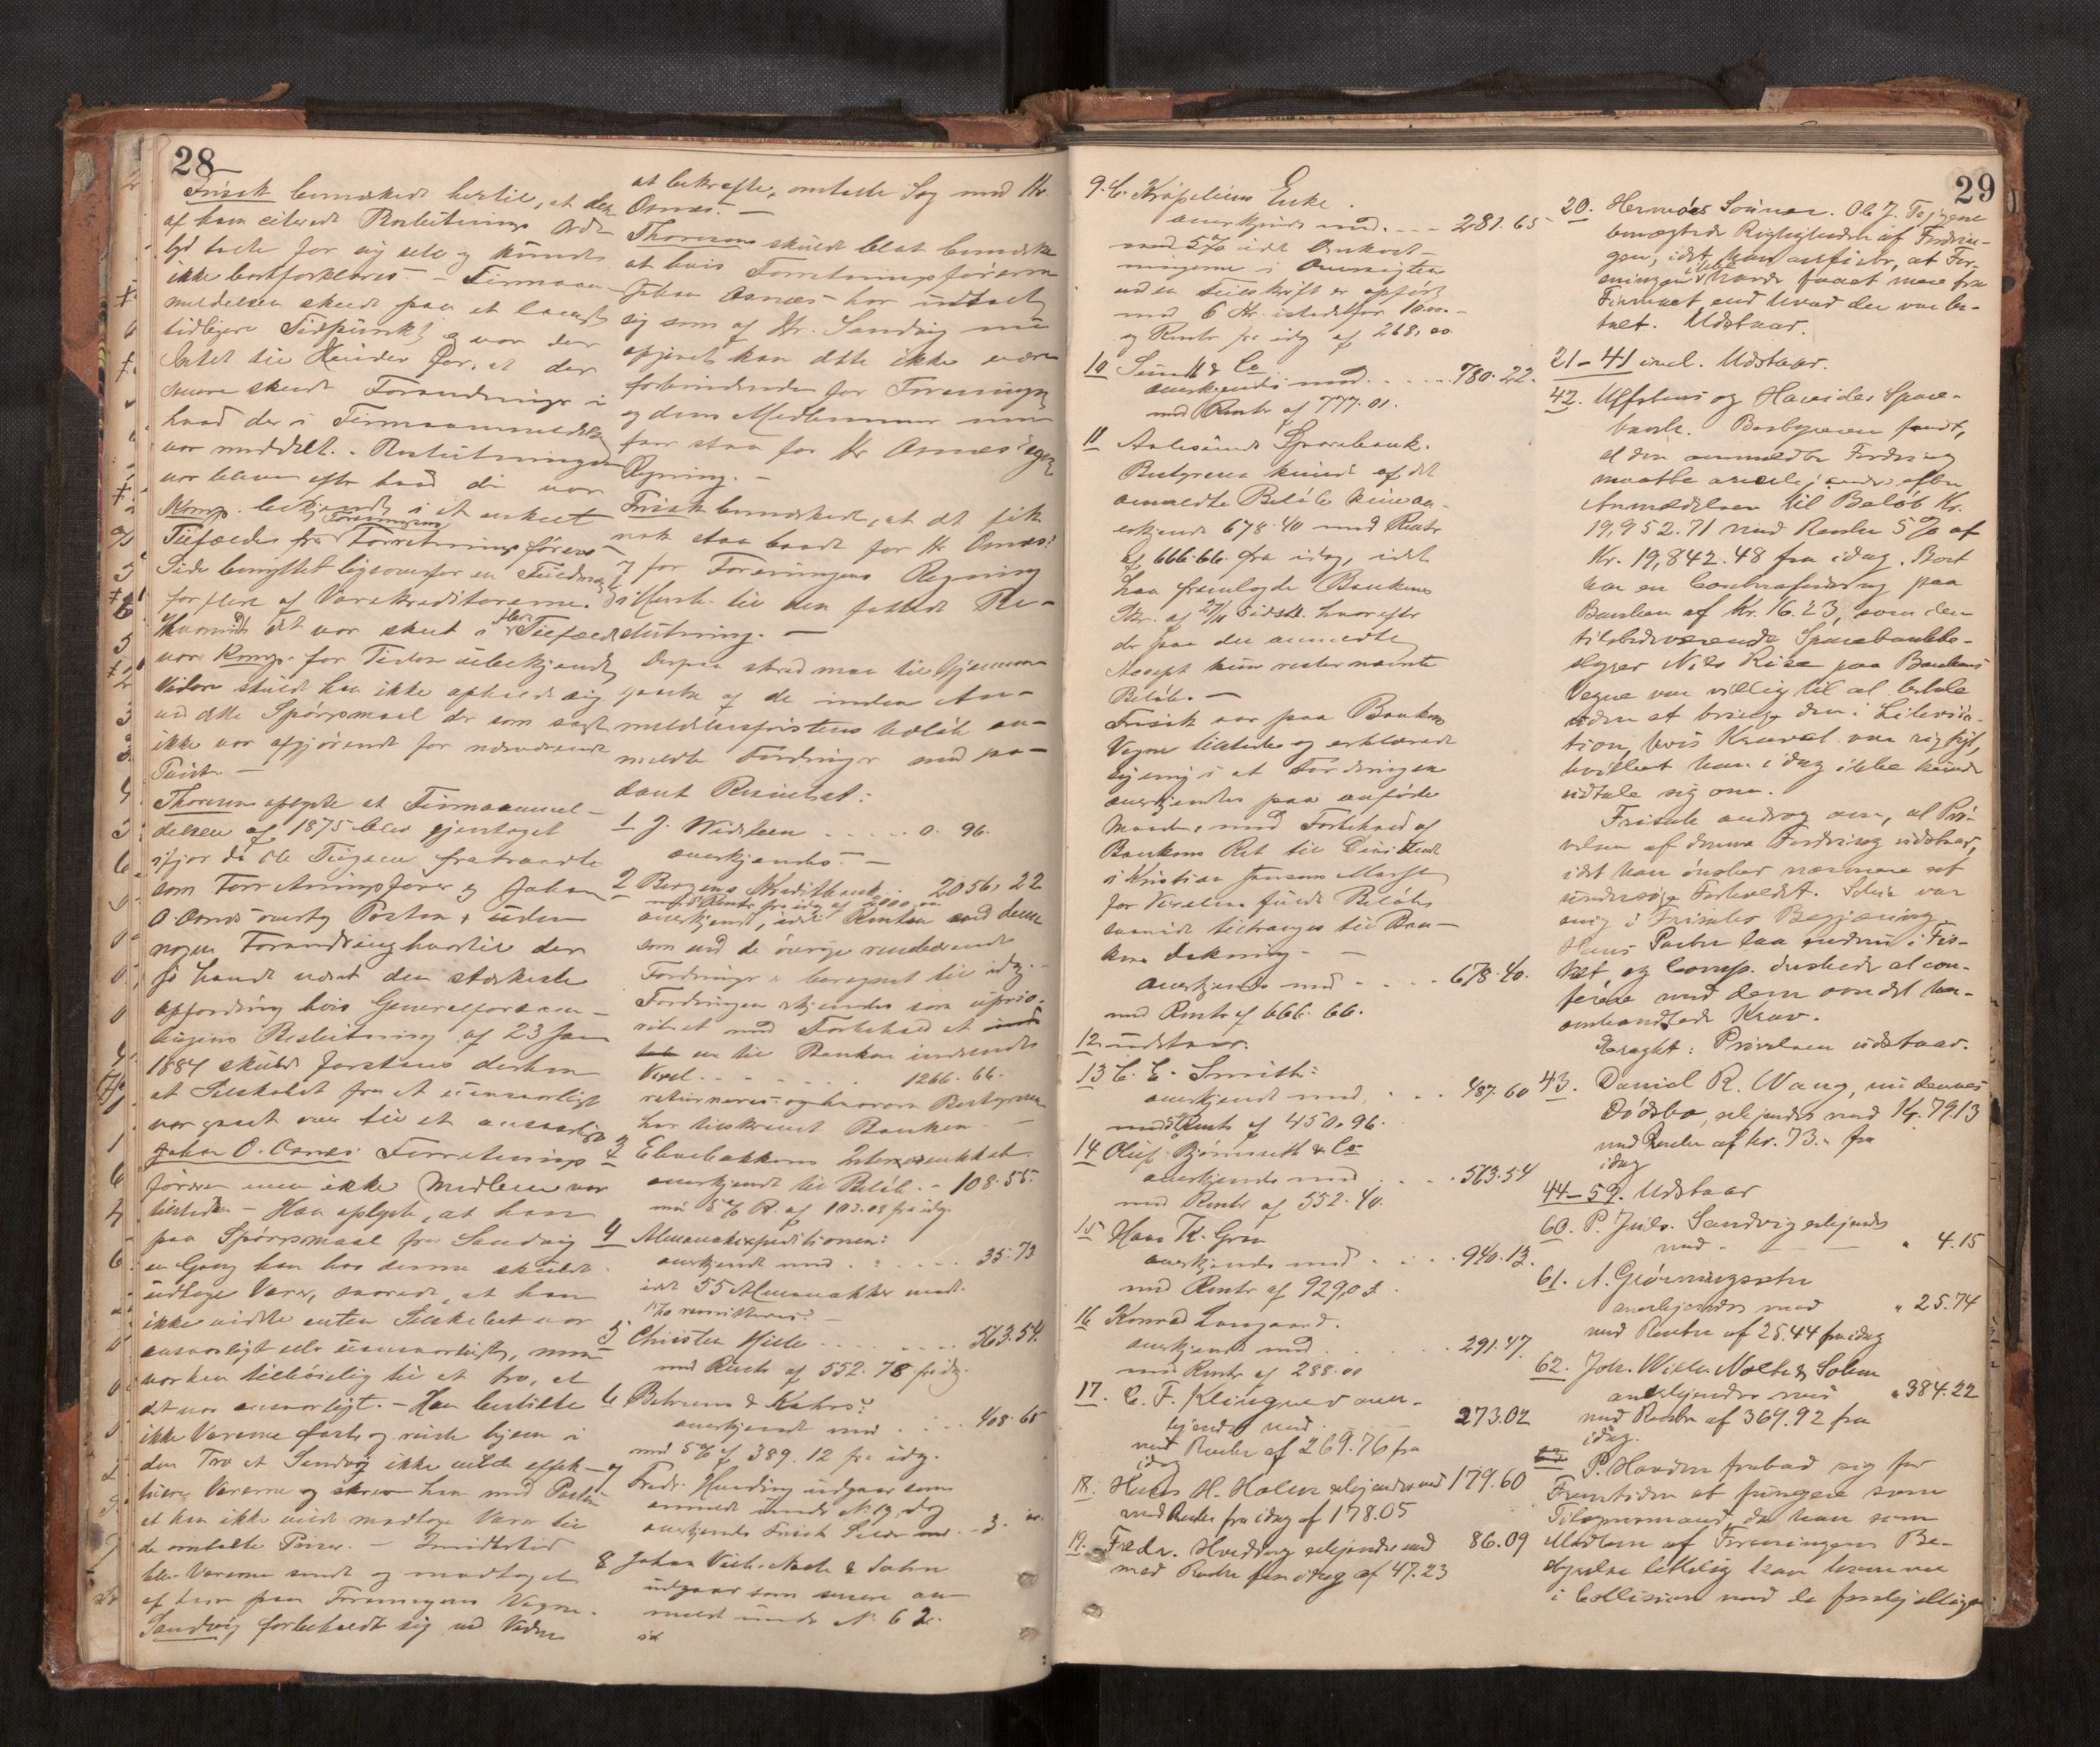 28
Frisak bemærkede hertil, at den
af ham citerede Beslutnings Ord-
lyd talte for sig selv og kunde
ikke bortforklares. – Firmaan-
meldelsen skede paa et langt
tidligere Tidspunkt og var der
Intet til Hinder for, at der
senere skede Forandringer i
hvad der i Firmaanmeldelsen
var meddelt. – Beslutningen
var bleven efter hvad der var
Komp. bekjendt i et enkelt
Tilfælde fra Foreningens Forretningsførers
Side benyttet ligeoverfor en Fuldmægtig
for flere af Varekreditorerne.
Hvorvidt det var skeet i flere Tilfælde
var Komp. for Tiden ubekjendt
Videre skulde han ikke opholde sig
ved dette Spørgsmaal der som sagt
ikke var afgjørende for nærværende
Tvist. –
Thoresen oplyste at Firmaanmel-
delsen af 1875 blev gjentaget
ifjor da Ole Tiigane fratraadte
som Forretningsfører og Johan
O. Osnæs overtog Posten, uden
nogen Forandring hvortil der
jo havde været den stærkeste
opfordring hvis Generalforsam-
lingens Beslutning af 23 Jan
1884 skulde forstaaes derhen
at Selskabet fra et uansvarligt
var gaaet over til et ansvarligt
Johan O. Osnæs Forretnings
fører men ikke Medlem var
tilstede. – Han oplyste, at han
paa Spørgsmaal fra Sandvig
en Gang han hos denne skulde
udtage Varer, svarede, at han
ikke vidste enten Selskabet var
ansvarligt eller uansvarligt, men
var han tilbøielig til at tro, at
det var ansvarligt. – Han bestilte
ikke Varerne forts og reiste hjem i
den Tro at Sandvig ikke vilde effek-
tuere Varerne og skrev han med Posten
at han ikke vilde modtage Varer til
de omtalte Priser. – Imidlertid
blev Varerne sendt og modtaget
af ham paa Foreningens Vegne.
Sandvig forbeholdt sig ved Vidner
at bekræfte, omtalte Sag med Hr.
Osnæs. –
Thoresen skulde blot bemærke
at hvis Forretningsføreren
Johan Osnæs har udtalt
sig som af Hr. Sandvig nu
opgivet kan dette ikke være
forbindende for Foreningen
og dens Medlemmer men
faar staa for Hr Osnæs' egen
Regning. –
Frisak bemærkede, at det fik
nok staa baade for Hr Osnæs'
og for Foreningens Regning
i Henh. til den fattede Be-
slutning. –
Derpaa skred man til Gjennem-
gaaelse af de inden An-
meldelsesfristens Udløb an-
meldte Fordringer med saa-
dant Resultat:
1 J. Widsteen . . . . . 0. 96.
anerkjendes. –
2 Bergens Kreditbank . . 2056. 22
med Rente fra idag af 2000,00
anerkjendt, idet Renten ved denne
som ved de øvrige rentebærende
Fordringer er beregnet til idag. –
Fordringen erkjendes som uprio-
riteret med Forbehold at
en til Banken indsendt
Vexel . . . . . 1266. 66.
returneres og hvorom Bestyreren
har tilskrevet Banken –
3
anerkjendt til Beløb . – 108. 55.
med 5 % R. af 103.03 fra idag.
4 Almanakexpeditionen:
anerkjendt med . . . . . 35. 73
idet 55 Almanakker medt.
remitteres. –
5 Christen Hille . . . . . 563. 54.
med Rente af 552. 78 fra idag.
6 Behrens & Kahrs:
anerkjendt med . . . 408. 65
med 5 % af 389. 12 fra idag.
7 Fredr. Hvoding udgaar som
anmeldt under No 19, dog
anerkjendes Frisak Salær med . – 3. 00.
8 Johan Vilh. Nolte & Sohn
udgaar som senere an-
meldt under No 62.
29
9. C. Krøpeliens Enke.
anerkjendes med. – – – 281. 65
med 5% idet Omkost-
ningerne i Oversigten
ved en Feilskrift er opført
med 6 Kr. istedetfor 10.00. –
og Rente fra idag af 268,00
10 Sundt & Co
anerkjendes med . . . . . 780. 22.
med Rente af 777. 01.
11 Aalesunds Sparebank.
Bestyreren kunde af det
anmeldte Beløb kun an-
erkjende 678.40 med Rente
af 666.66 fra idag, idet
han fremlagde Bankens
Skr. af 27/11 sidstl. hvorefter
der paa den anmeldte
Accept kun rester nævnte
Beløb. –
Frisak var paa Bankens
Vegne tilstede og erklærede
sig enig i at Fordringen
anerkjendes paa anførte
Maade, med Forbehold af
Bankens Ret til Dividende
i Kristian Jensens Masse
for Vexelens fulde Beløb
saavidt tiltrænges til Ban-
kens Dækning. –
anerkjendes med . . . . 678. 40.
med Rente af 666. 66.
12 udstaar.
13 C. E. Smith:
anerkjendt med . . . . 487. 60
med Rente af 450. 96.
14 Oluf Bjørnseth & Co
anerkjendes med . . . . 563. 54
med Rente af 552. 40.
15 Hans K. Gran
anerkjendes med . . . . 940. 13.
med Rente af 929,03.
16 Konrad Langaard.
anerkjendt med . . . . 291. 47.
med Rente af 288.00
17. C. F. Klingner aner-
kjendes med . . . . 273.02
med Renter af 269.76 fra
idag
18. Hans H. Holm erkjendes med 179.60
med Renter fra idag af 178.05
19. Fredr. Hvoding erkjendes med 86.09
med Renter fra idag af 47.23
20. Hermoes Sønner. Ole J. Tiigane
benegtede Rigtigheden af Fordrin-
gen, idet han anførte, at For-
eningen ikke havde faaet mere fra
Firmaet end hvad der var be-
talt. Udstaar.
21 – 41 incl. Udstaar.
42. Ulfstens og Hareides Spare-
bank. Bestyreren fandt,
at den anmeldte Fordring
maatte anerkjendes efter
Anmeldelsen til Beløb Kr.
19,952.71 med Renter 5% af
Kr. 19,842.48 fra idag. Boet
har en Contrafordring paa
Banken af Kr. 16.23, som den
tilstedeværende Sparebankbe-
styrer Nils Rise paa Bankens
Vegne var villig til at betale
uden at bringe den i Likvida-
tion, hvis Kravet var rigtigt,
hvilket han idag ikke kunde
udtale sig om.
Frisak androg om, at Prø-
velsen af denne Fordring udstaar,
idet han ønsker nærmere at
undersøge Forholdet. Solem var
enig i Frisaks Begjæring.
Hans Parter laa endnu i Fis-
ket og Comp. ønskede at con-
ferere med dem om det her
omhandlede Krav.
Eragtet: Prøvelsen udstaar.
43. Daniel R. Wang, nu dennes
Dødsbo, erkjendes med 14.7913
med Renter af Kr. 73. " fra
idag
44 – 59. Udstaar
60. P. Juels. Sandvig erkjendes
med – – – " 4.15
61. A. Gjørningsstr
anerkjendes med " 25.74
med Renter af 25.44 fra idag
62. Joh. Wilh. Nolte & Sohn
anerkjendes med " 384.22
med Renter af 369.92 fra
idag.
P. Havden frabad sig for
Fremtiden at fungere som
Tilsynsmand, da han som
Medlem af Foreningens Be-
styrelse lettelig kan komme
i Collision med de forskjellige